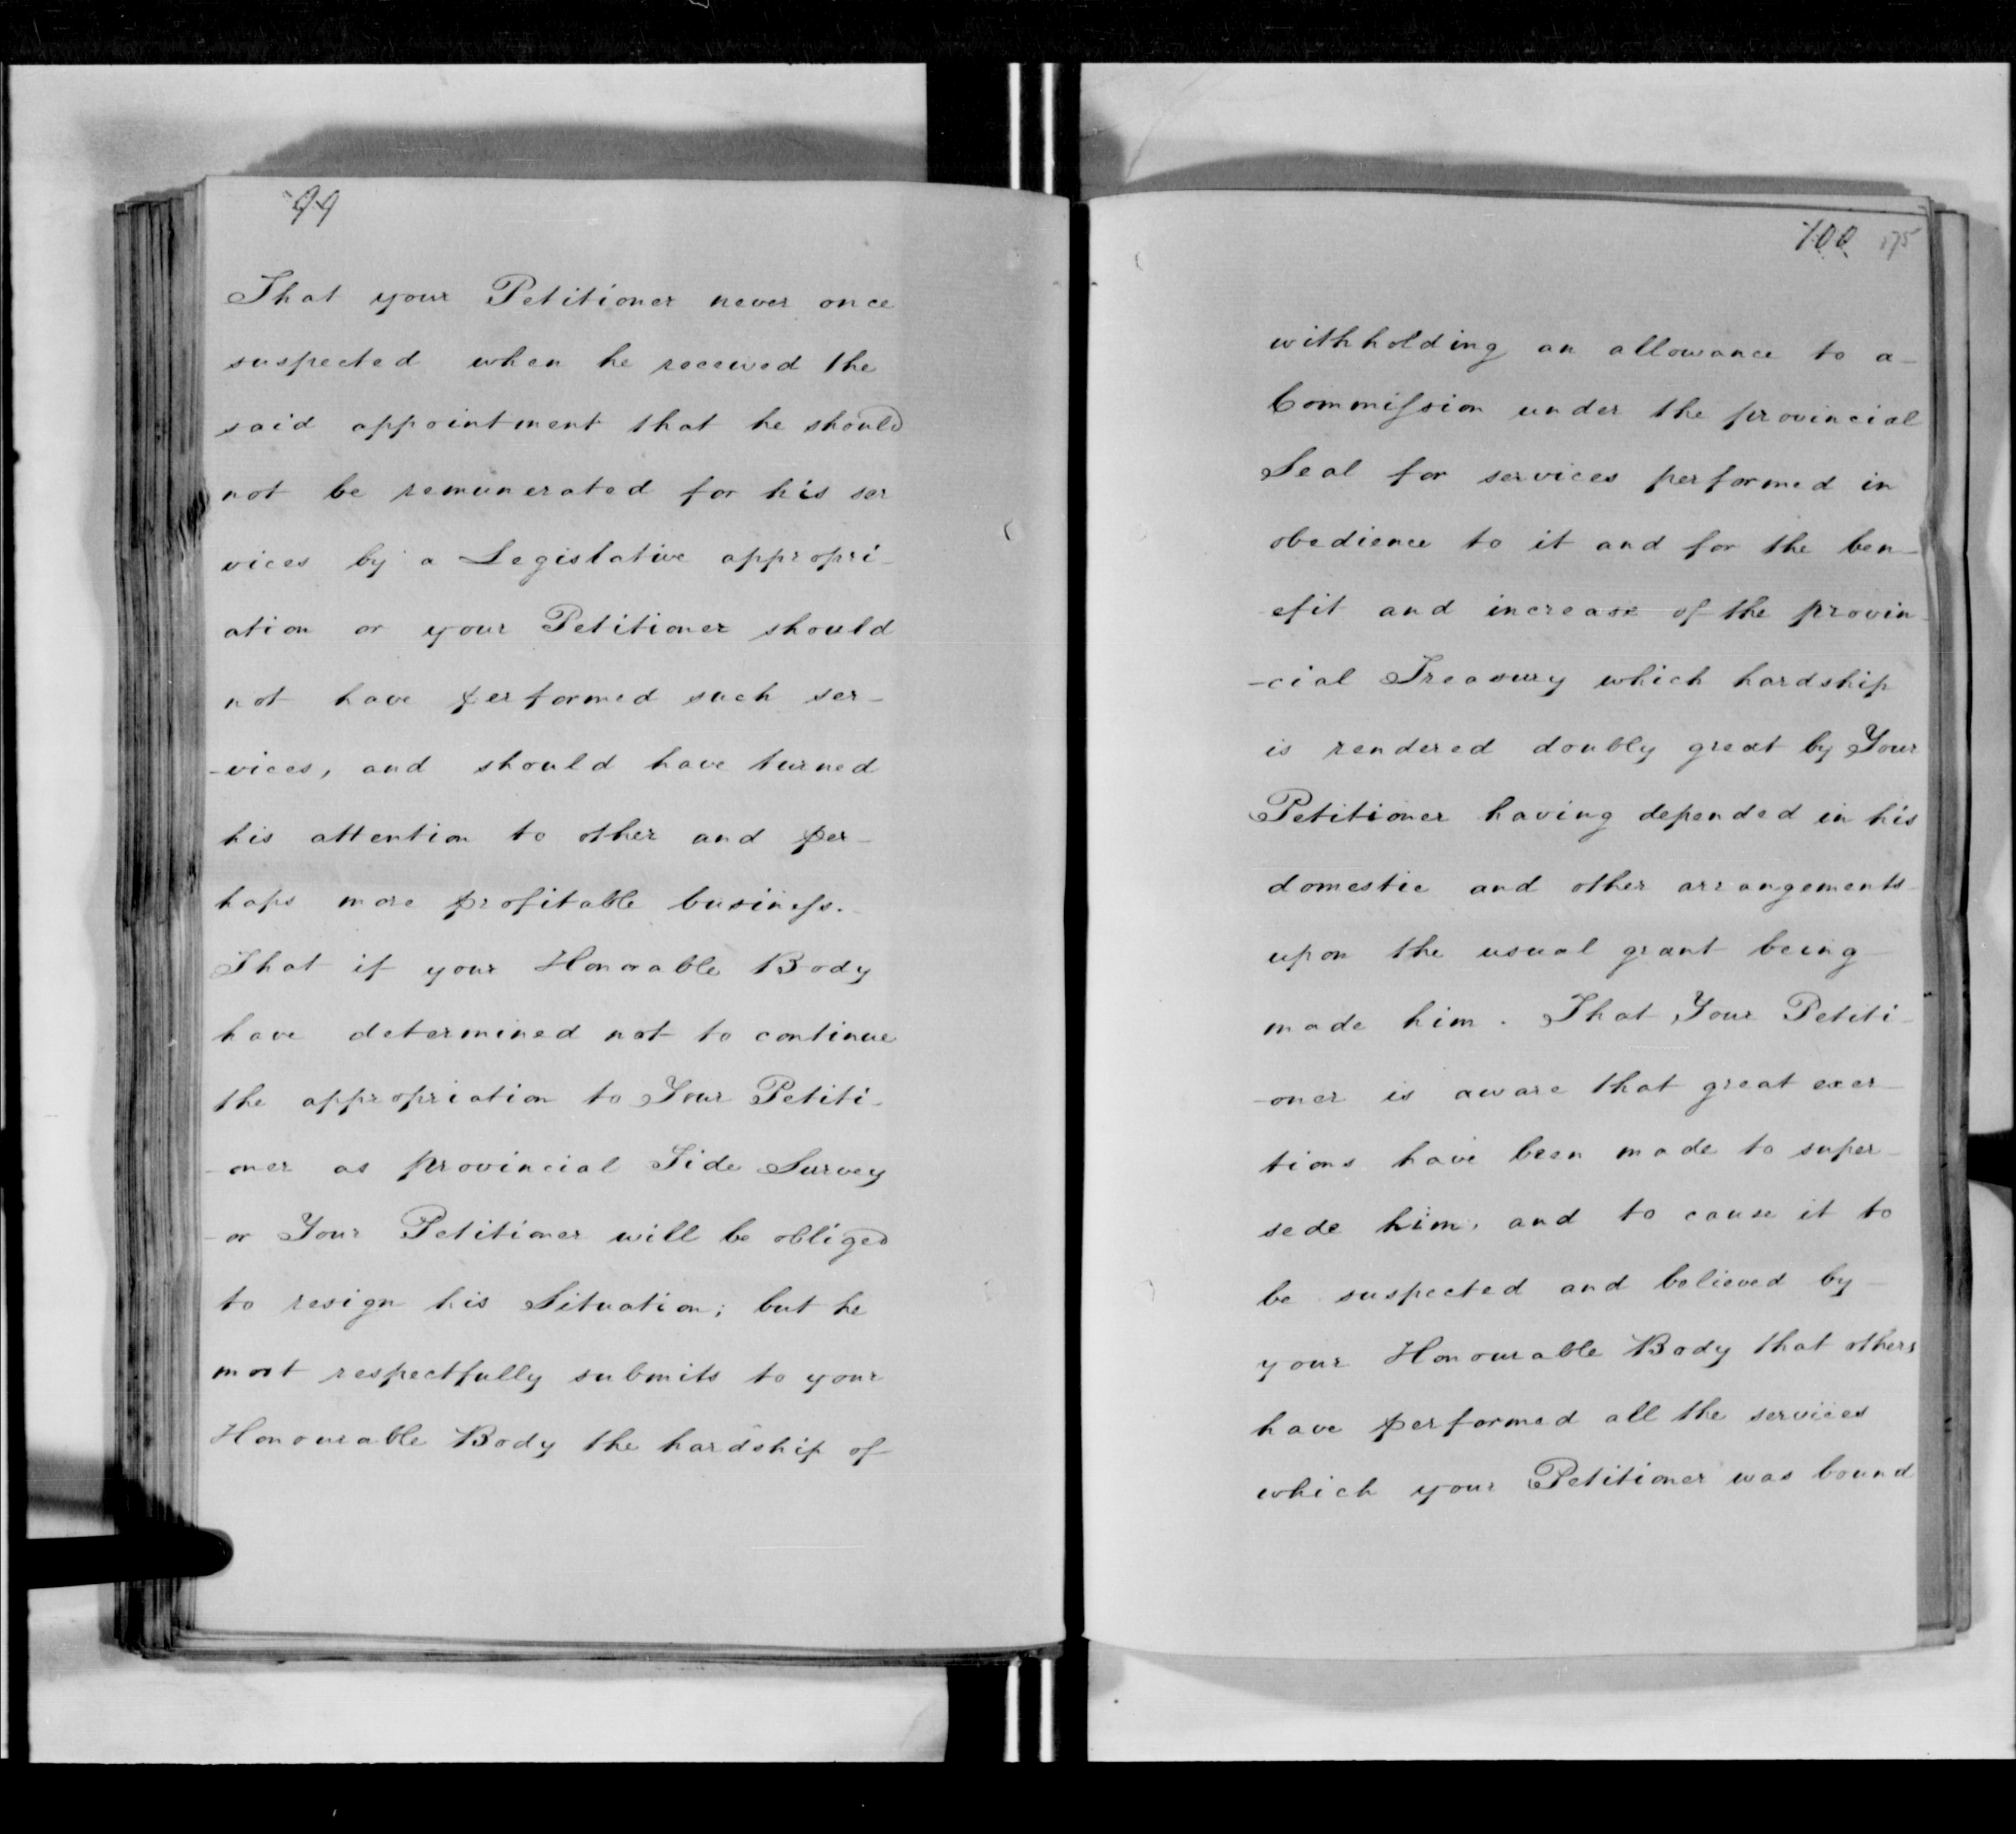 99
That your Petitioner never once
suspected when he received the
said appointment that he should
not be remunerated for his ser
vices by a Legislative appropri-
ation or your Petitioner should
not have performed such ser-
-vices, and should have turned
his attention to other and per-
haps more profitable business.
That if your Honorable Body
have determined not to continue
the appropriation to Your Petiti-
-oner as provincial Tide Survey
-or Your Petitioner will be obliged
to resign his Situation; but he
most respectfully submits to your
Honourable Body the hardship of
100 175
withholding an allowance to a-
Commission under the provincial
Seal for services performed in
obedience to it and for the ben-
efit and increase of the provin-
-cial Treasury which hardship
is rendered doubly great by Your
Petitioner having depended in his
domestic and other arrangements
upon the usual grant being
made him. That Your Petiti-
-oner is aware that great exer-
tions have been made to super-
sede him, and to cause it to
be suspected and believed by-
your Honourable Body that others
have performed all the services
which your Petitioner was bound